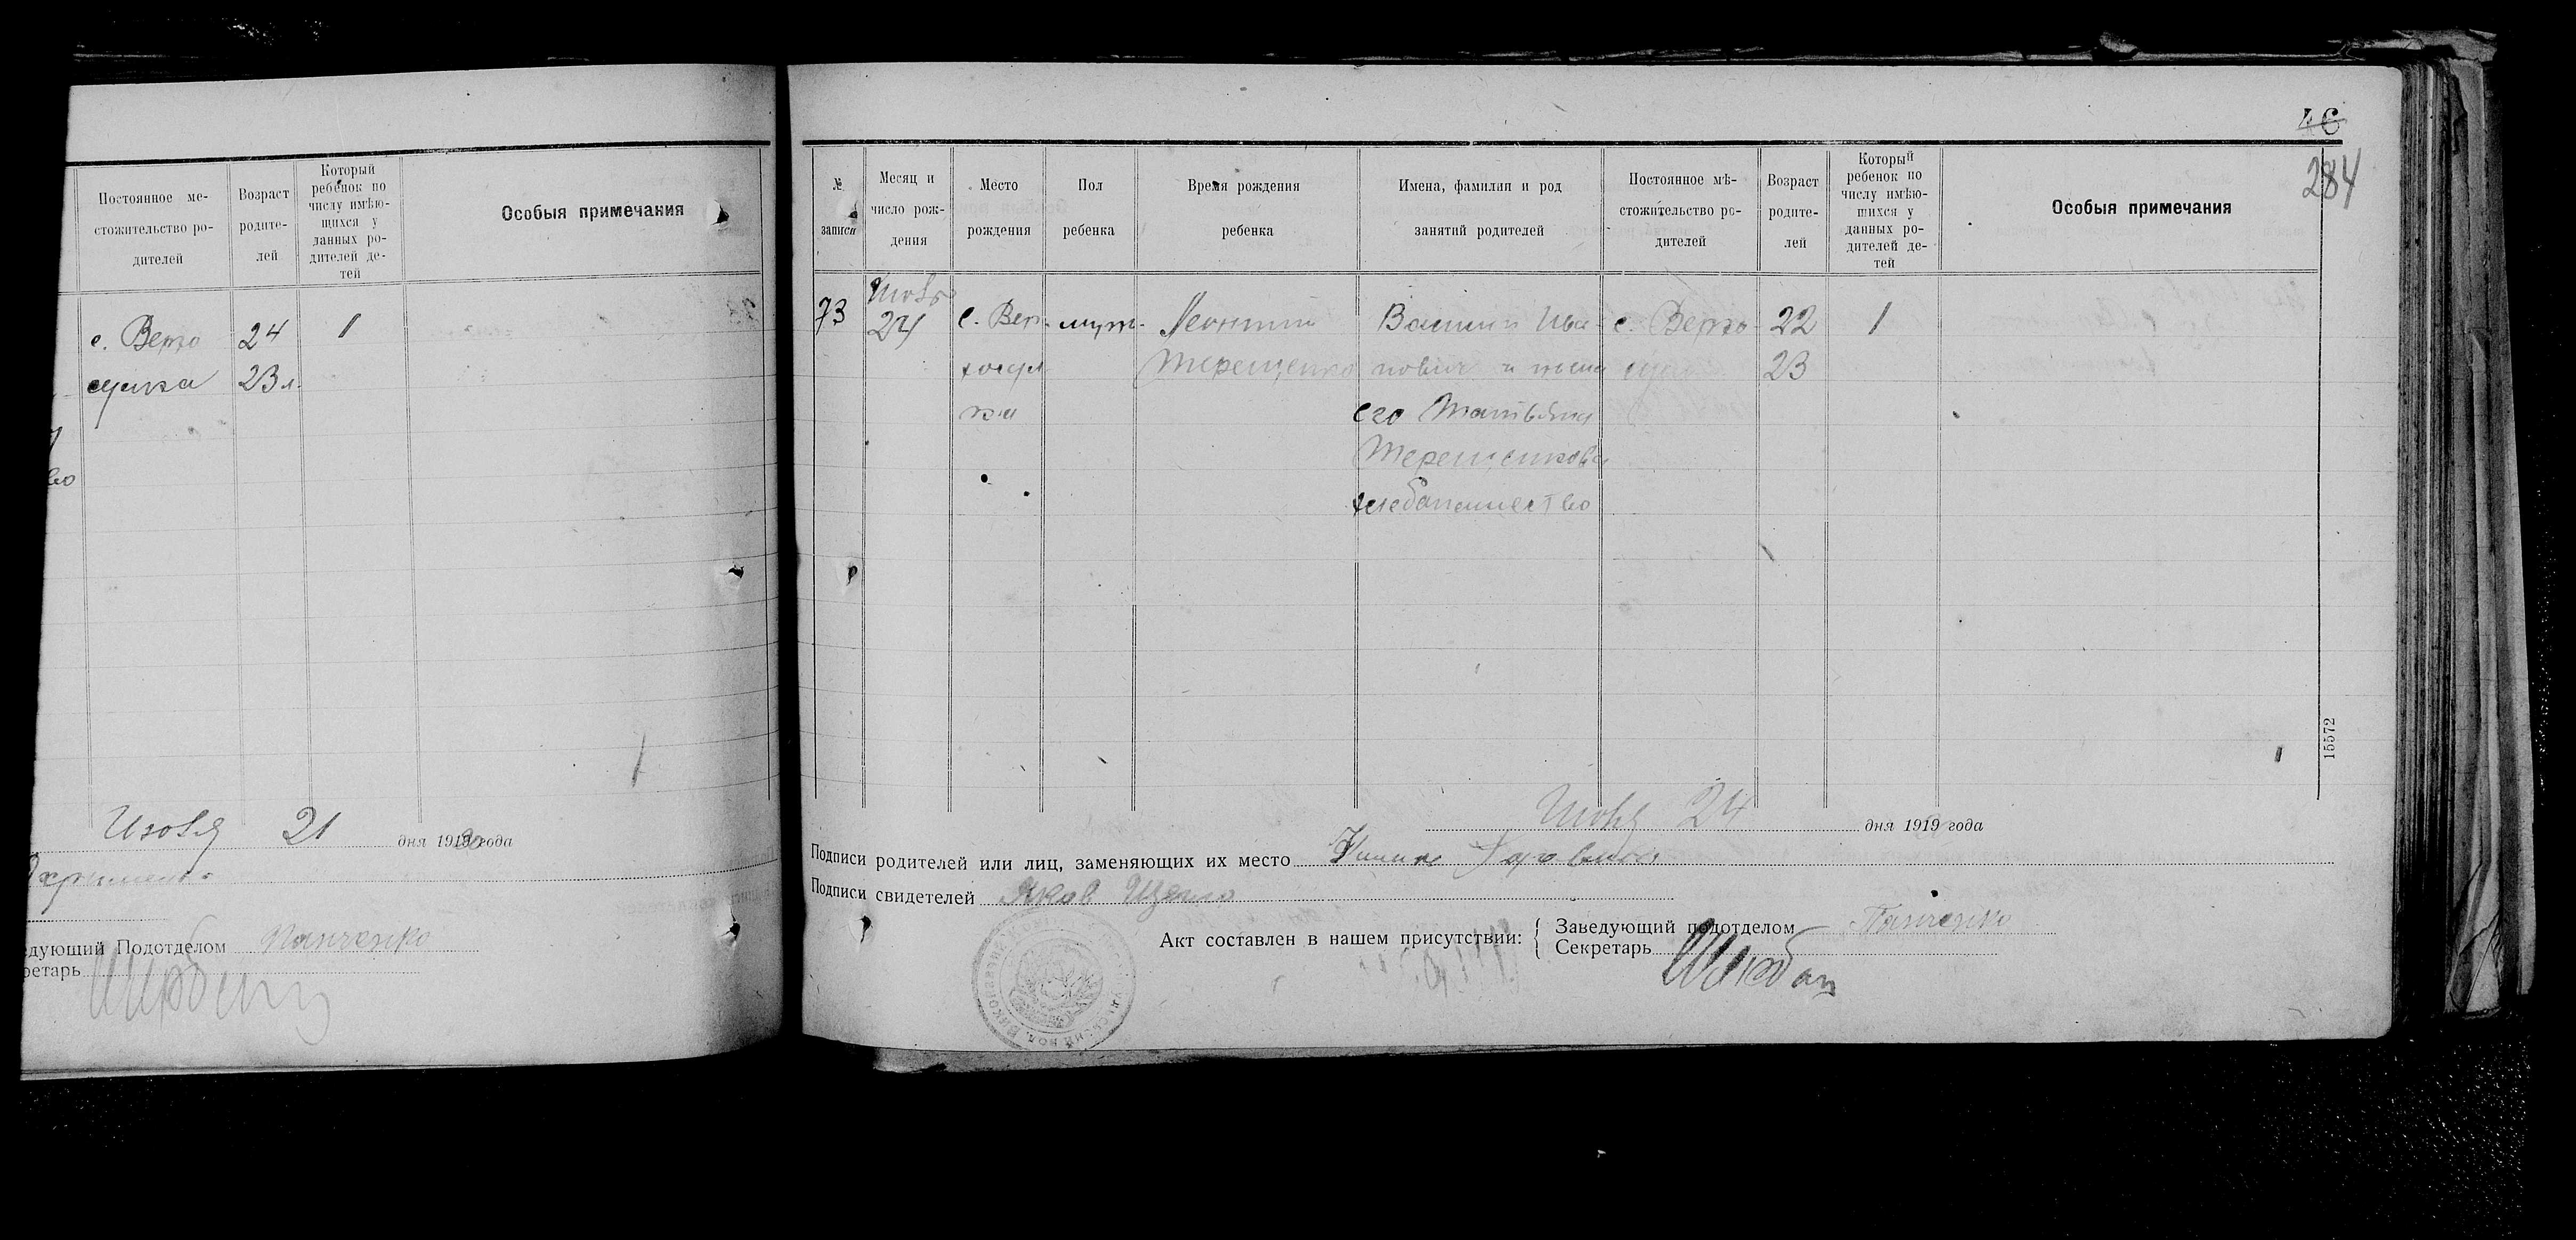 Постоянное ме-
стожительство ро-
дителей
Возраст
родите-
лей
Который
ребенок по
числу имѣю-
щихся у
данных ро-
дителей де-
тей
Особыя примечания
с. Верхо
сулка
24
23 л.
1
Июля 21 дня 1919 года
едующий Подотделом Панченко
ретарь
46
284
№
записи
Месяц и
число рож-
дения
Место
рождения
Пол
ребенка
Время рождения
ребенка
Имена, фамилии и род
занятий родителей
Постоянное мѣ-
стожительство ро-
дителей
Возраст
родите-
лей
Который
ребенок по
числу имѣю-
щихся у
данных ро-
дителей де-
тей
Особыя примечания
73
Июль
24
с. Вер-
хосул
ка
муж.
Леонтий
Терещенко
Василий Ива-
нович и жена
его Татьяна
Терещенкова
хлебопашество
с. Верхо-
22
23
1
15572
Июля 24 дня 1919 года
Подписи родителей или лиц, заменяющих их место
Подписи свидетелей Яков
Акт составлен в нашем присутствии:
Заведующий подотделом Панченко
Секретарь